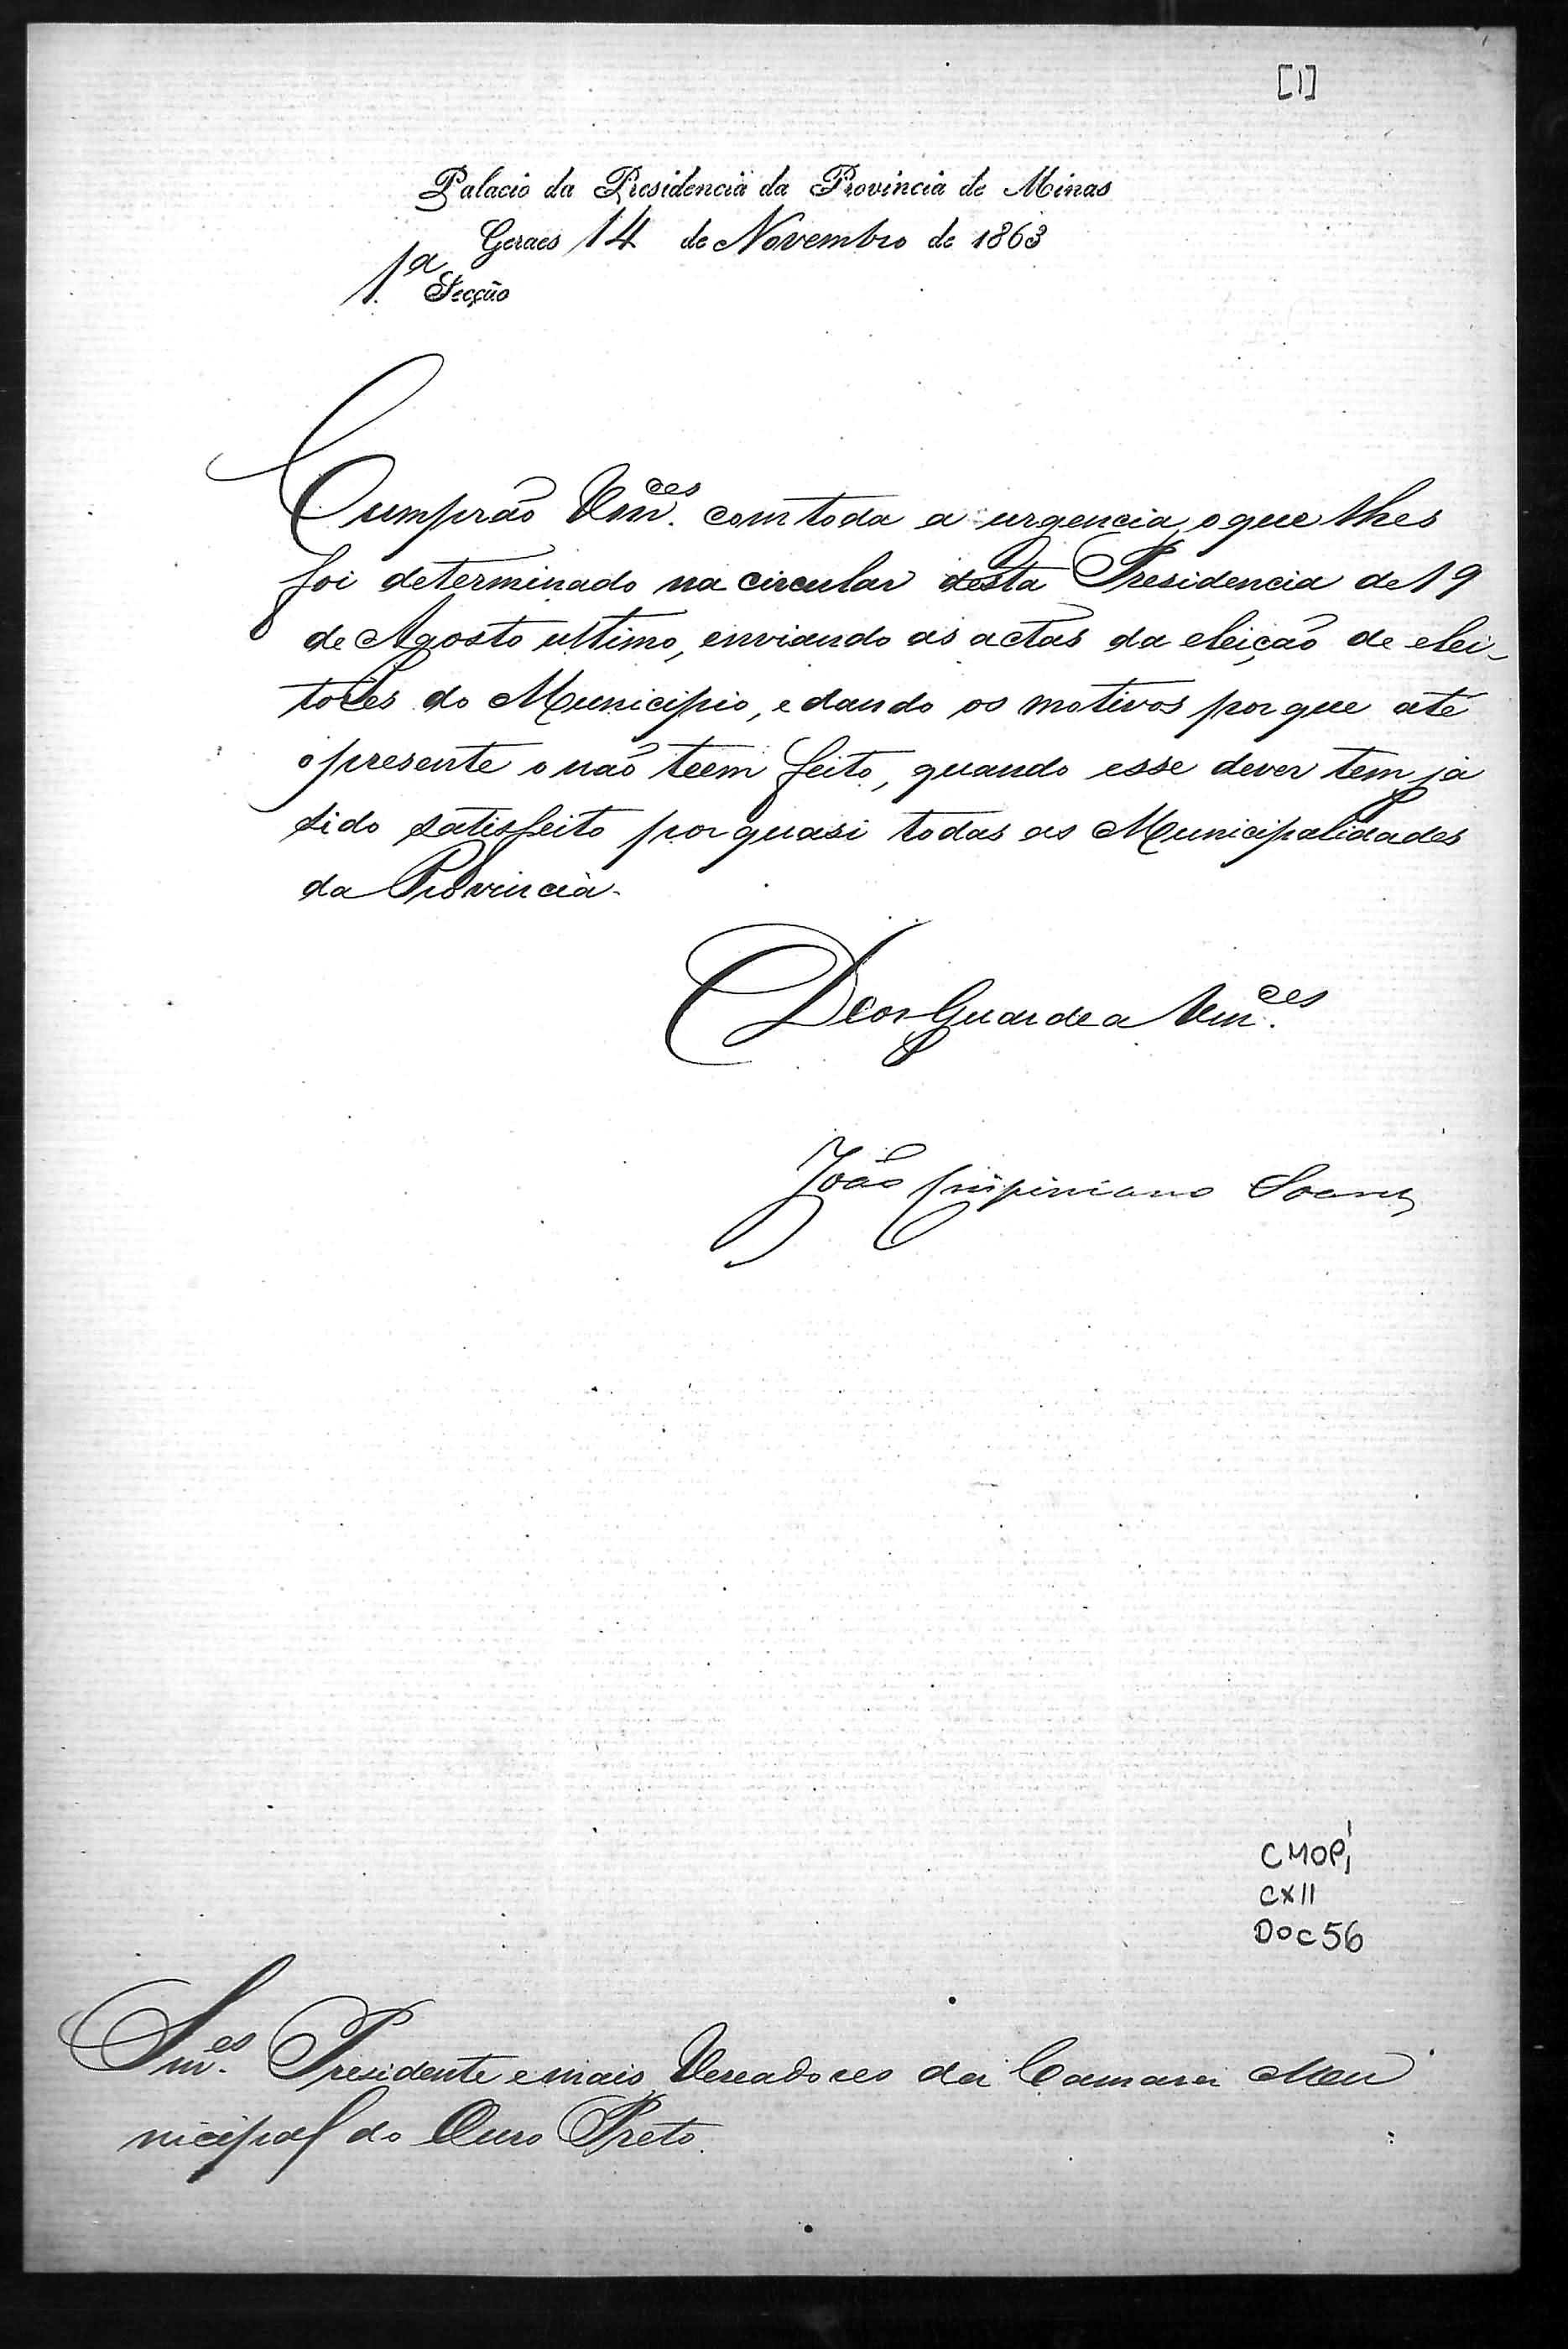 [1]
Palacio da Presidencia da Provincia de Minas
Geraes 14 de Novembro de 1863
1.ª Secção
Cumprão Vm.ces com toda a urgencia o que lhes
foi determinado na circular desta Presidencia de 19
de Agosto ultimo, enviando as actas da eleição de elei-
tores do Municipio, e dando os motivos porque até
o presente o não teem feito, quando esse dever tem já
sido satisfeito por quasi todas as Municipalidades
da Provincia.
Deos Guarde a Vm.ces
João Crispiniano Soares
CMOP
CX11
DOC 56
Snr.es Presidente e mais Vereadores da Camara Mu
nicipal do Ouro Preto.